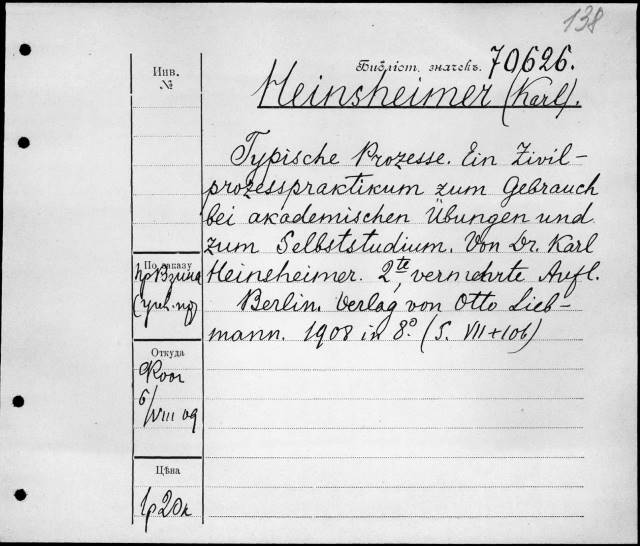 138
Библіот. значекъ. 70626.
Инв.
№
Heinsheimer (Karl).
Typische Prozesse. Ein Zivil-
prozesspraktikum zum Gebrauch
bei akademischen Übungen und
zum Selbststudium. Von Dr. Karl
Heinsheimer. 2te, vermehrte Aufl.
Berlin. Verlag von Otto Lieb-
mann. 1908 in 8° (S. VII+106)
По заказу
Откуда
6/VIII 09
Цѣна
1р 20к